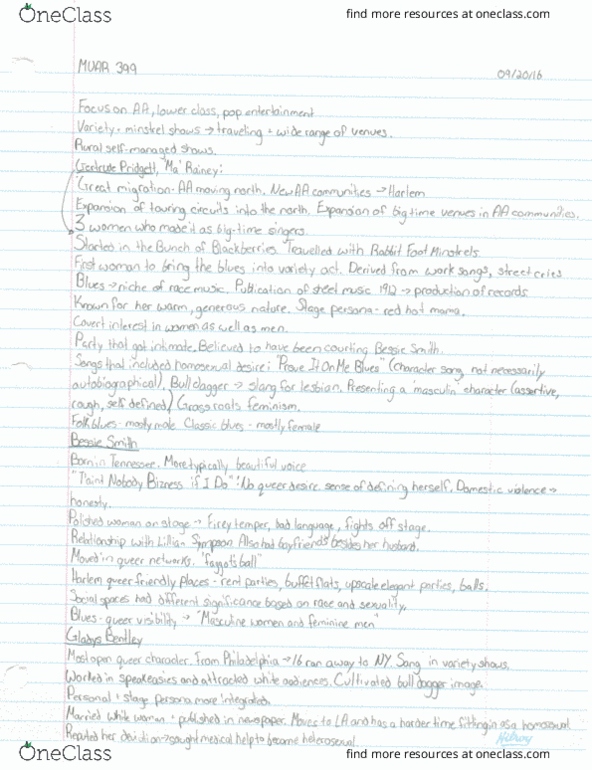 OneClass
find more resources at oneclass.com
MUAR 399
09/20/16
Focus on AA, lower class, pop entertainment
Variety + minstrel shows → traveling + wide range of venues.
Rural self-managed shows.
Gertrude Pridgett, 'Ma' Rainey:
Great migration - AA moving north. New AA communities → Harlem
Expansion of touring circuits into the north. Expansion of big time venues in AA communities.
3 women who made it as big-time singers.
Started in the Bunch of Blackberries. Travelled with Rabbit Foot Minstrels
First woman to bring the blues into variety act. Derived from work songs, street cries
Blues → niche of race music. Publication of sheet music 1912 → production of records
Known for her warm, generous nature. Stage persona - red hot mama.
Covert interest in women as well as men.
Party that got intimate. Believed to have been courting Bessie Smith.
Songs that included homosexual desire: "Prove It On Me Blues" (character song, not necessarily
autobiographical). Bull dagger → slang for lesbian. Presenting a 'masculin' character (assertive,
rough, self defined) Grass roots feminism.
Folk blues - mostly male Classic blues - mostly female
Bessie Smith
Born in Tennessee. More typically beautiful voice
"Taint Nobody Bizness if I Do": No queer desire. sense of defining herself. Domestic violence →
honesty.
Polished woman on stage → Firey temper, bad language, fights off stage.
Relationship with Lillian Simpson. Also had boyfriends besides her husband.
Moved in queer networks. "faggots ball"
Harlem queer friendly places - rent parties, buffet flats, upscale elegant parties, balls.
Social spaces had different significance based on race and sexuality.
Blues - queer visibility → "Masculine women and feminine men"
Gladys Bentley
Most open queer character. From Philadelphia → 16 ran away to NY. Sang in variety shows.
Worked in speakeasies and attracted white audiences. Cultivated bull dagger image.
Personal + stage persona more integrated.
Married white woman + published in newspaper. Moves to LA and has a harder time fitting in as a homosexual.
her decision → sought medical help to become heterosexual.
Hilroy
OneClass
find more resources at oneclass.com